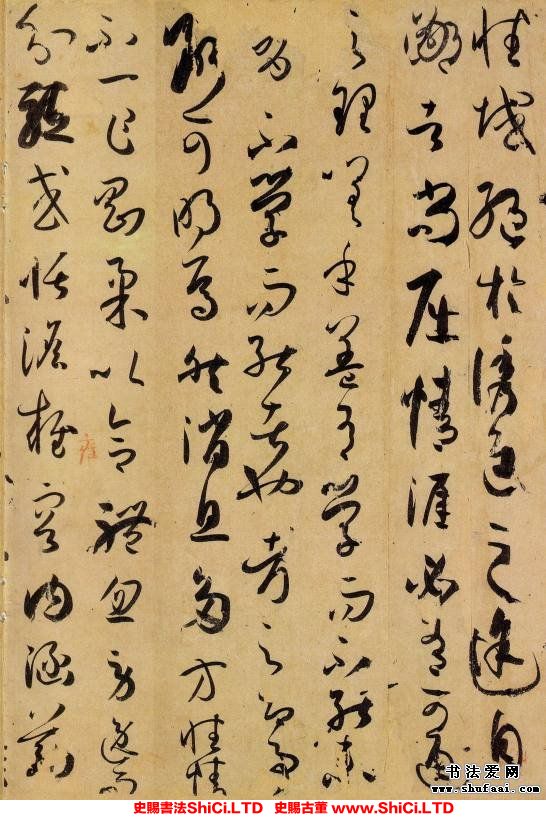 性域絕於誘進之途自
鄙者尚屈情涯必有可通
之理嗟乎蓋有學而不能未
有不學而能者也考之即事
斷可明焉然消息多方性情
不一乍剛柔以合體忽勞逸而
分驅或恬憺雍容內涵筋
书法爱网
www.shufaai.com
史賜書法ShiCi.LTD 史賜古董 www.ShiCi.LTD